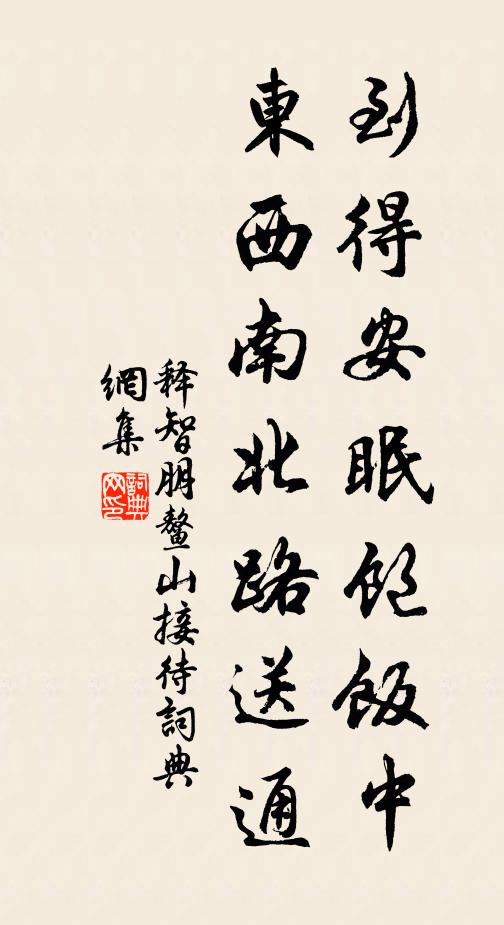 到得安眠飽飯中
東西南北路送通
释智朋鳌山接待詞典
網集
詞典
网印